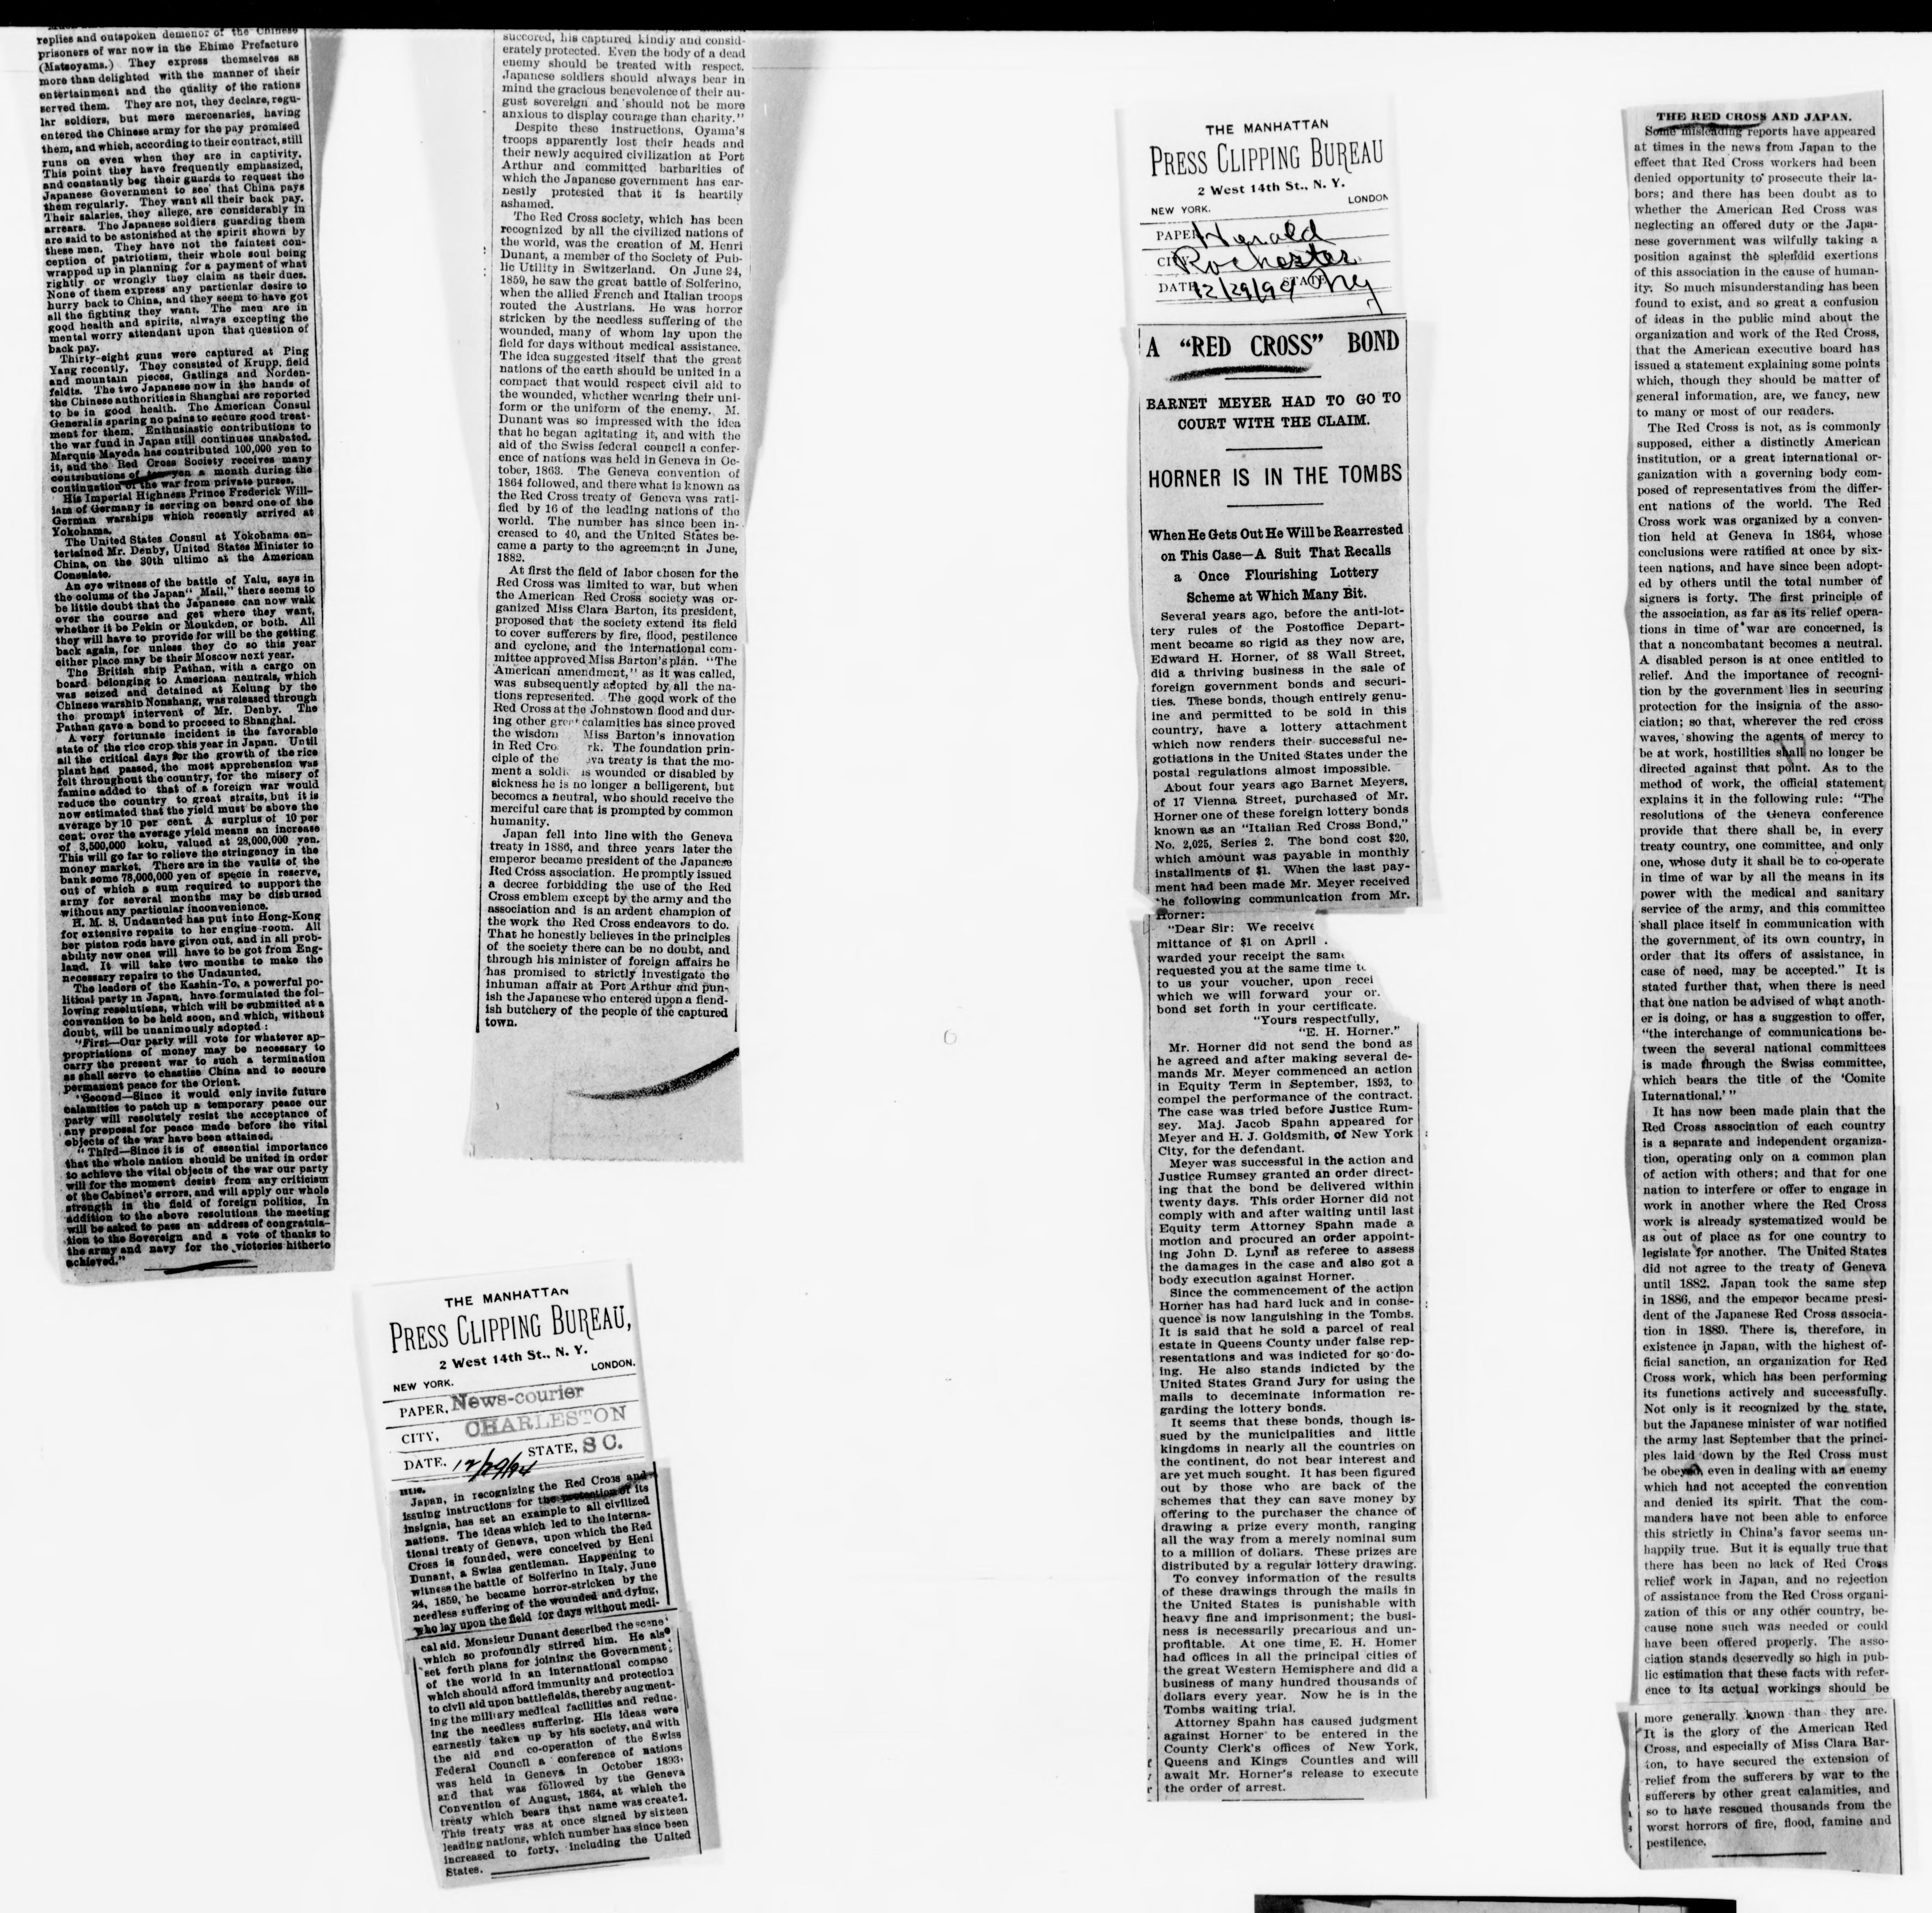 replies and outspoken demenor of the Chinese
prisoners of war now in the Ehime Prefacture
(Matsoyama.) They express themselves as
more than delighted with the manner of their
entertainment and the quality of the rations
served them. They are not, they declare, regu-
lar soldiers, but mere mercenaries, having
entered the Chinese army for the pay promised
them, and which, according to their contract, still
runs on even when they are in captivity.
This point they have frequently emphasized,
and constantly beg their guards to request the
Japanese Government to see that China pays
them regularly. They want all their back pay.
Their salaries, they allege, are considerably in
arrears. The Japanese soldiers guarding them
are said to be astonished at the spirit shown by
these men. They have not the faintest con-
ception of patriotism, their whole soul being
wrapped up in planning for a payment of what
rightly or wrongly they claim as their dues.
None of them express any particular desire to
hurry back to China, and they seem to have got
all the fighting they want. The men are in
good health and spirits, always excepting the
mental worry attendant upon that question of
back pay.
Thirty-eight guns were captured at Ping
Yang recently. They consisted of Krupp, field
and mountain pieces, Gatlings and Norden-
feldts. The two Japanese now in the hands of
the Chinese authorities in Shanghai are reported
to be in good health. The American Consul
General is sparing no pains to secure good treat-
ment for them. Enthusiastic contributions to
the war fund in Japan still continues unabated.
Marquis Mayeda has contributed 100,000 yen to
it, and the Red Cross Society receives many
contributions of yen a month during the
continuation of the war from private purses.
His Imperial Highness Prince Frederick Will-
iam of Germany is serving on board one of the
German warships which recently arrived at
Yokohama.
The United States Consul at Yokohama en-
tertained Mr. Denby, United States Minister to
China, on the 30th ultimo at the American
Consulate.
An eye witness of the battle of Yalu, says in
the colums of the Japan "Mail," there seems to
be little doubt that the Japanese can now walk
over the course and get where they want,
whether it be Pekin or Moukden, or both. All
they will have to provide for will be the getting
back again, for unless they do so this year
either place may be their Moscow next year.
The British ship Pathan, with a cargo on
board belonging to American neutrals, which
was seized and detained at Kelung by the
Chinese warship Nonshang, was released through
the prompt intervent of Mr. Denby. The
Pathan gave a bond to proceed to Shanghai.
A very fortunate incident is the favorable
state of the rice crop this year in Japan. Until
all the critical days for the growth of the rice
plant had passed, the most apprehension was
felt throughout the country, for the misery of
famine added to that of a foreign war would
reduce the country to great straits, but it is
now estimated that the yield must be above the
average by 10 per cent. A surplus of 10 per
cent. over the average yield means an increase
of 3,500,000 koku, valued at 28,000,000 yen.
This will go far to relieve the stringency in the
money market. There are in the vaults of the
bank some 78,000,000 yen of specie in reserve,
out of which a sum required to support the
army for several months may be disbursed
without any particular inconvenience.
H. M. S. Undaunted has put into Hong-Kong
for extensive repaits to her engine-room. All
her piston rods have given out, and in all prob-
ability new ones will have to be got from Eng-
land. It will take two months to make the
necessary repairs to the Undaunted.
The leaders of the Kashin-To, a powerful po-
litical party in Japan, have formulated the fol-
lowing resolutions, which will be submitted at a
convention to be held soon, and which, without
doubt, will be unanimously adopted:
"First—Our party will vote for whatever ap-
propriations of money may be necessary to
carry the present war to such a termination
as shall serve to chastise China and to secure
permanent peace for the Orient.
"Second—Since it would only invite future
calamities to patch up a temporary peace our
party will resolutely resist the acceptance of
any proposal for peace made before the vital
objects of the war have been attained.
"Third—Since it is of essential importance
that the whole nation should be united in order
to achieve the vital objects of the war our party
will for the moment desist from any criticism
of the Cabinet's errors, and will apply our whole
strength in the field of foreign politics. In
addition to the above resolutions the meeting
will be asked to pass an address of congratula-
tion to the Sovereign and a vote of thanks to
the army and navy for the victories hitherto
achieved."
succored, his captured kindly and consid-
erately protected. Even the body of a dead
enemy should be treated with respect.
Japanese soldiers should always bear in
mind the gracious benevolence of their au-
gust sovereign and should not be more
anxious to display courage than charity."
Despite these instructions, Oyama's
troops apparently lost their heads and
their newly acquired civilization at Port
Arthur and committed barbarities of
which the Japanese government has ear-
nestly protested that it is heartily
ashamed.
The Red Cross society, which has been
recognized by all the civilized nations of
the world, was the creation of M. Henri
Dunant, a member of the Society of Pub-
lic Utility in Switzerland. On June 24,
1859, he saw the great battle of Solferino,
when the allied French and Italian troops
routed the Austrians. He was horror
stricken by the needless suffering of the
wounded, many of whom lay upon the
field for days without medical assistance.
The idea suggested itself that the great
nations of the earth should be united in a
compact that would respect civil aid to
the wounded, whether wearing their uni-
form or the uniform of the enemy. M.
Dunant was so impressed with the idea
that he began agitating it, and with the
aid of the Swiss federal council a confer-
ence of nations was held in Geneva in Oc-
tober, 1863. The Geneva convention of
1864 followed, and there what is known as
the Red Cross treaty of Geneva was rati-
fied by 16 of the leading nations of the
world. The number has since been in-
creased to 40, and the United States be-
came a party to the agreement in June,
1882.
At first the field of labor chosen for the
Red Cross was limited to war, but when
the American Red Cross society was or-
ganized Miss Clara Barton, its president,
proposed that the society extend its field
to cover sufferers by fire, flood, pestilence
and cyclone, and the international com-
mittee approved Miss Barton's plan. "The
American amendment," as it was called,
was subsequently adopted by all the na-
tions represented. The good work of the
Red Cross at the Johnstown flood and dur-
ing other gre calamities has since proved
the wisdom Miss Barton's innovation
in Red Cro rk. The foundation prin-
ciple of the va treaty is that the mo-
ment a soldi is wounded or disabled by
sickness he is no longer a belligerent, but
becomes a neutral, who should receive the
merciful care that is prompted by common
humanity.
Japan fell into line with the Geneva
treaty in 1886, and three years later the
emperor became president of the Japanese
Red Cross association. He promptly issued
a decree forbidding the use of the Red
Cross emblem except by the army and the
association and is an ardent champion of
the work the Red Cross endeavors to do.
That he honestly believes in the principles
of the society there can be no doubt, and
through his minister of foreign affairs he
has promised to strictly investigate the
inhuman affair at Port Arthur and pun-
ish the Japanese who entered upon a fiend-
ish butchery of the people of the captured
town.
THE MANHATTAN
PRESS CLIPPING BUREAU,
2 West 14th St., N. Y.
NEW YORK. LONDON.
PAPER, News-courier
CITY, CHARLESTON
DATE, 12/29/94 STATE, S C.
Japan, in recognizing the Red Cross and
issuing instructions for the protection of its
insignia, has set an example to all civilized
nations. The ideas which led to the interna-
tional treaty of Geneva, upon which the Red
Cross is founded, were conceived by Heni
Dunant, a Swiss gentleman. Happening to
witness the battle of Solferino in Italy, June
24, 1859, he became horror-stricken by the
needless suffering of the wounded and dying,
who lay upon the field for days without medi-
cal aid. Monsieur Dunant described the scene
which so profoundly stirred him. He also
set forth plans for joining the Government
of the world in an international compac
which should afford immunity and protection
to civil aid upon battlefields, thereby augment-
ing the military medical facilities and reduc-
ing the needless suffering. His ideas were
earnestly taken up by his society, and with
the aid and co-operation of the Swiss
Federal Council a conference of nations
was held in Geneva in October 1893,
and that was followed by the Geneva
Convention of August, 1864, at which the
treaty which bears that name was created.
This treaty was at once signed by sixteen
leading nations, which number has since been
increased to forty, including the United
States.
THE MANHATTAN
PRESS CLIPPING BUREAU
2 West 14th St., N. Y.
NEW YORK. LONDON
PAPER Herald
CITY Rochester
DATE 12/29/94 STATE NY
A "RED CROSS" BOND
BARNET MEYER HAD TO GO TO
COURT WITH THE CLAIM.
HORNER IS IN THE TOMBS
When He Gets Out He Will be Rearrested
on This Case—A Suit That Recalls
a Once Flourishing Lottery
Scheme at Which Many Bit.
Several years ago, before the anti-lot-
tery rules of the Postoffice Depart-
ment became so rigid as they now are,
Edward H. Horner, of 88 Wall Street,
did a thriving business in the sale of
foreign government bonds and securi-
ties. These bonds, though entirely genu-
ine and permitted to be sold in this
country, have a lottery attachment
which now renders their successful ne-
gotiations in the United States under the
postal regulations almost impossible.
About four years ago Barnet Meyers,
of 17 Vienna Street, purchased of Mr.
Horner one of these foreign lottery bonds
known as an "Italian Red Cross Bond,"
No. 2,025, Series 2. The bond cost $20,
which amount was payable in monthly
installments of $1. When the last pay-
ment had been made Mr. Meyer received
the following communication from Mr.
Horner:
"Dear Sir: We receive
mittance of $1 on April
warded your receipt the sam
requested you at the same time t
to us your voucher, upon recei
which we will forward your or
bond set forth in your certificate.
"Yours respectfully,
"E. H. Horner."
Mr. Horner did not send the bond as
he agreed and after making several de-
mands Mr. Meyer commenced an action
in Equity Term in September, 1893, to
compel the performance of the contract.
The case was tried before Justice Rum-
sey. Maj. Jacob Spahn appeared for
Meyer and H. J. Goldsmith, of New York
City, for the defendant.
Meyer was successful in the action and
Justice Rumsey granted an order direct-
ing that the bond be delivered within
twenty days. This order Horner did not
comply with and after waiting until last
Equity term Attorney Spahn made a
motion and procured an order appoint-
ing John D. Lynn as referee to assess
the damages in the case and also got a
body execution against Horner.
Since the commencement of the action
Horner has had hard luck and in conse-
quence is now languishing in the Tombs.
It is said that he sold a parcel of real
estate in Queens County under false rep-
resentations and was indicted for so do-
ing. He also stands indicted by the
United States Grand Jury for using the
mails to deceminate information re-
garding the lottery bonds.
It seems that these bonds, though is-
sued by the municipalities and little
kingdoms in nearly all the countries on
the continent, do not bear interest and
are yet much sought. It has been figured
out by those who are back of the
schemes that they can save money by
offering to the purchaser the chance of
drawing a prize every month, ranging
all the way from a merely nominal sum
to a million of dollars. These prizes are
distributed by a regular lottery drawing.
To convey information of the results
of these drawings through the mails in
the United States is punishable with
heavy fine and imprisonment; the busi-
ness is necessarily precarious and un-
profitable. At one time, E. H. Homer
had offices in all the principal cities of
the great Western Hemisphere and did a
business of many hundred thousands of
dollars every year. Now he is in the
Tombs waiting trial.
Attorney Spahn has caused judgment
against Horner to be entered in the
County Clerk's offices of New York,
Queens and Kings Counties and will
await Mr. Horner's release to execute
the order of arrest.
THE RED CROSS AND JAPAN.
Some misleading reports have appeared
at times in the news from Japan to the
effect that Red Cross workers had been
denied opportunity to prosecute their la-
bors; and there has been doubt as to
whether the American Red Cross was
neglecting an offered duty or the Japa-
nese government was wilfully taking a
position against the splendid exertions
of this association in the cause of human-
ity. So much misunderstanding has been
found to exist, and so great a confusion
of ideas in the public mind about the
organization and work of the Red Cross,
that the American executive board has
issued a statement explaining some points
which, though they should be matter of
general information, are, we fancy, new
to many or most of our readers.
The Red Cross is not, as is commonly
supposed, either a distinctly American
institution, or a great international or-
ganization with a governing body com-
posed of representatives from the differ-
ent nations of the world. The Red
Cross work was organized by a conven-
tion held at Geneva in 1864, whose
conclusions were ratified at once by six-
teen nations, and have since been adopt-
ed by others until the total number of
signers is forty. The first principle of
the association, as far as its relief opera-
tions in time of war are concerned, is
that a noncombatant becomes a neutral.
A disabled person is at once entitled to
relief. And the importance of recogni-
tion by the government lies in securing
protection for the insignia of the asso-
ciation; so that, wherever the red cross
waves, showing the agents of mercy to
be at work, hostilities shall no longer be
directed against that point. As to the
method of work, the official statement
explains it in the following rule: "The
resolutions of the Geneva conference
provide that there shall be, in every
treaty country, one committee, and only
one, whose duty it shall be to co-operate
in time of war by all the means in its
power with the medical and sanitary
service of the army, and this committee
shall place itself in communication with
the government of its own country, in
order that its offers of assistance, in
case of need, may be accepted." It is
stated further that, when there is need
that one nation be advised of what anoth-
er is doing, or has a suggestion to offer,
"the interchange of communications be-
tween the several national committees
is made through the Swiss committee,
which bears the title of the 'Comite
International.'"
It has now been made plain that the
Red Cross association of each country
is a separate and independent organiza-
tion, operating only on a common plan
of action with others; and that for one
nation to interfere or offer to engage in
work in another where the Red Cross
work is already systematized would be
as out of place as for one country to
legislate for another. The United States
did not agree to the treaty of Geneva
until 1882. Japan took the same step
in 1886, and the emperor became presi-
dent of the Japanese Red Cross associa-
tion in 1889. There is, therefore, in
existence in Japan, with the highest of-
ficial sanction, an organization for Red
Cross work, which has been performing
its functions actively and successfully.
Not only is it recognized by the state,
but the Japanese minister of war notified
the army last September that the princi-
ples laid down by the Red Cross must
be obeyed, even in dealing with an enemy
which had not accepted the convention
and denied its spirit. That the com-
manders have not been able to enforce
this strictly in China's favor seems un-
happily true. But it is equally true that
there has been no lack of Red Cross
relief work in Japan, and no rejection
of assistance from the Red Cross organi-
zation of this or any other country, be-
cause none such was needed or could
have been offered properly. The asso-
ciation stands deservedly so high in pub-
lic estimation that these facts with refer-
ence to its actual workings should be
more generally known than they are.
It is the glory of the American Red
Cross, and especially of Miss Clara Bar-
ton, to have secured the extension of
relief from the sufferers by war to the
sufferers by other great calamities, and
so to have rescued thousands from the
worst horrors of fire, flood, famine and
pestilence.